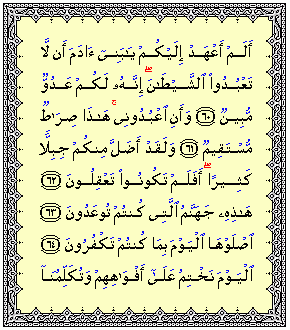 أَلَمْ أَعْهَدْ إِلَيْكُمْ يَٰبَنِىٓ ءَادَمَ أَن لَّا
تَعْبُدُوا۟ ٱلشَّيْطَٰنَ ۖ إِنَّهُۥ لَكُمْ عَدُوٌّ
مُّبِينٌ ﴿٦٠﴾ وَأَنِ ٱعْبُدُونِى ۚ هَٰذَا صِرَٰطٌ
مُّسْتَقِيمٌ ﴿٦١﴾ وَلَقَدْ أَضَلَّ مِنكُمْ جِبِلًّا
كَثِيرًا ۖ أَفَلَمْ تَكُونُوا۟ تَعْقِلُونَ ﴿٦٢﴾
هَٰذِهِۦ جَهَنَّمُ ٱلَّتِى كُنتُمْ تُوعَدُونَ ﴿٦٣﴾
ٱصْلَوْهَا ٱلْيَوْمَ بِمَا كُنتُمْ تَكْفُرُونَ ﴿٦٤﴾
ٱلْيَوْمَ نَخْتِمُ عَلَىٰٓ أَفْوَٰهِهِمْ وَتُكَلِّمُنَآ